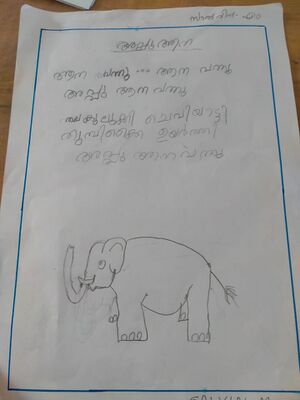 അപ്പു ആന
ആന വന്നു ... ആന വന്നു
അപ്പു ആന വന്നു
തലകുലുക്കി ചെവിയാട്ടി
തുമ്പിക്കൈ ഉയർത്തി
അപ്പു ആന വന്നു